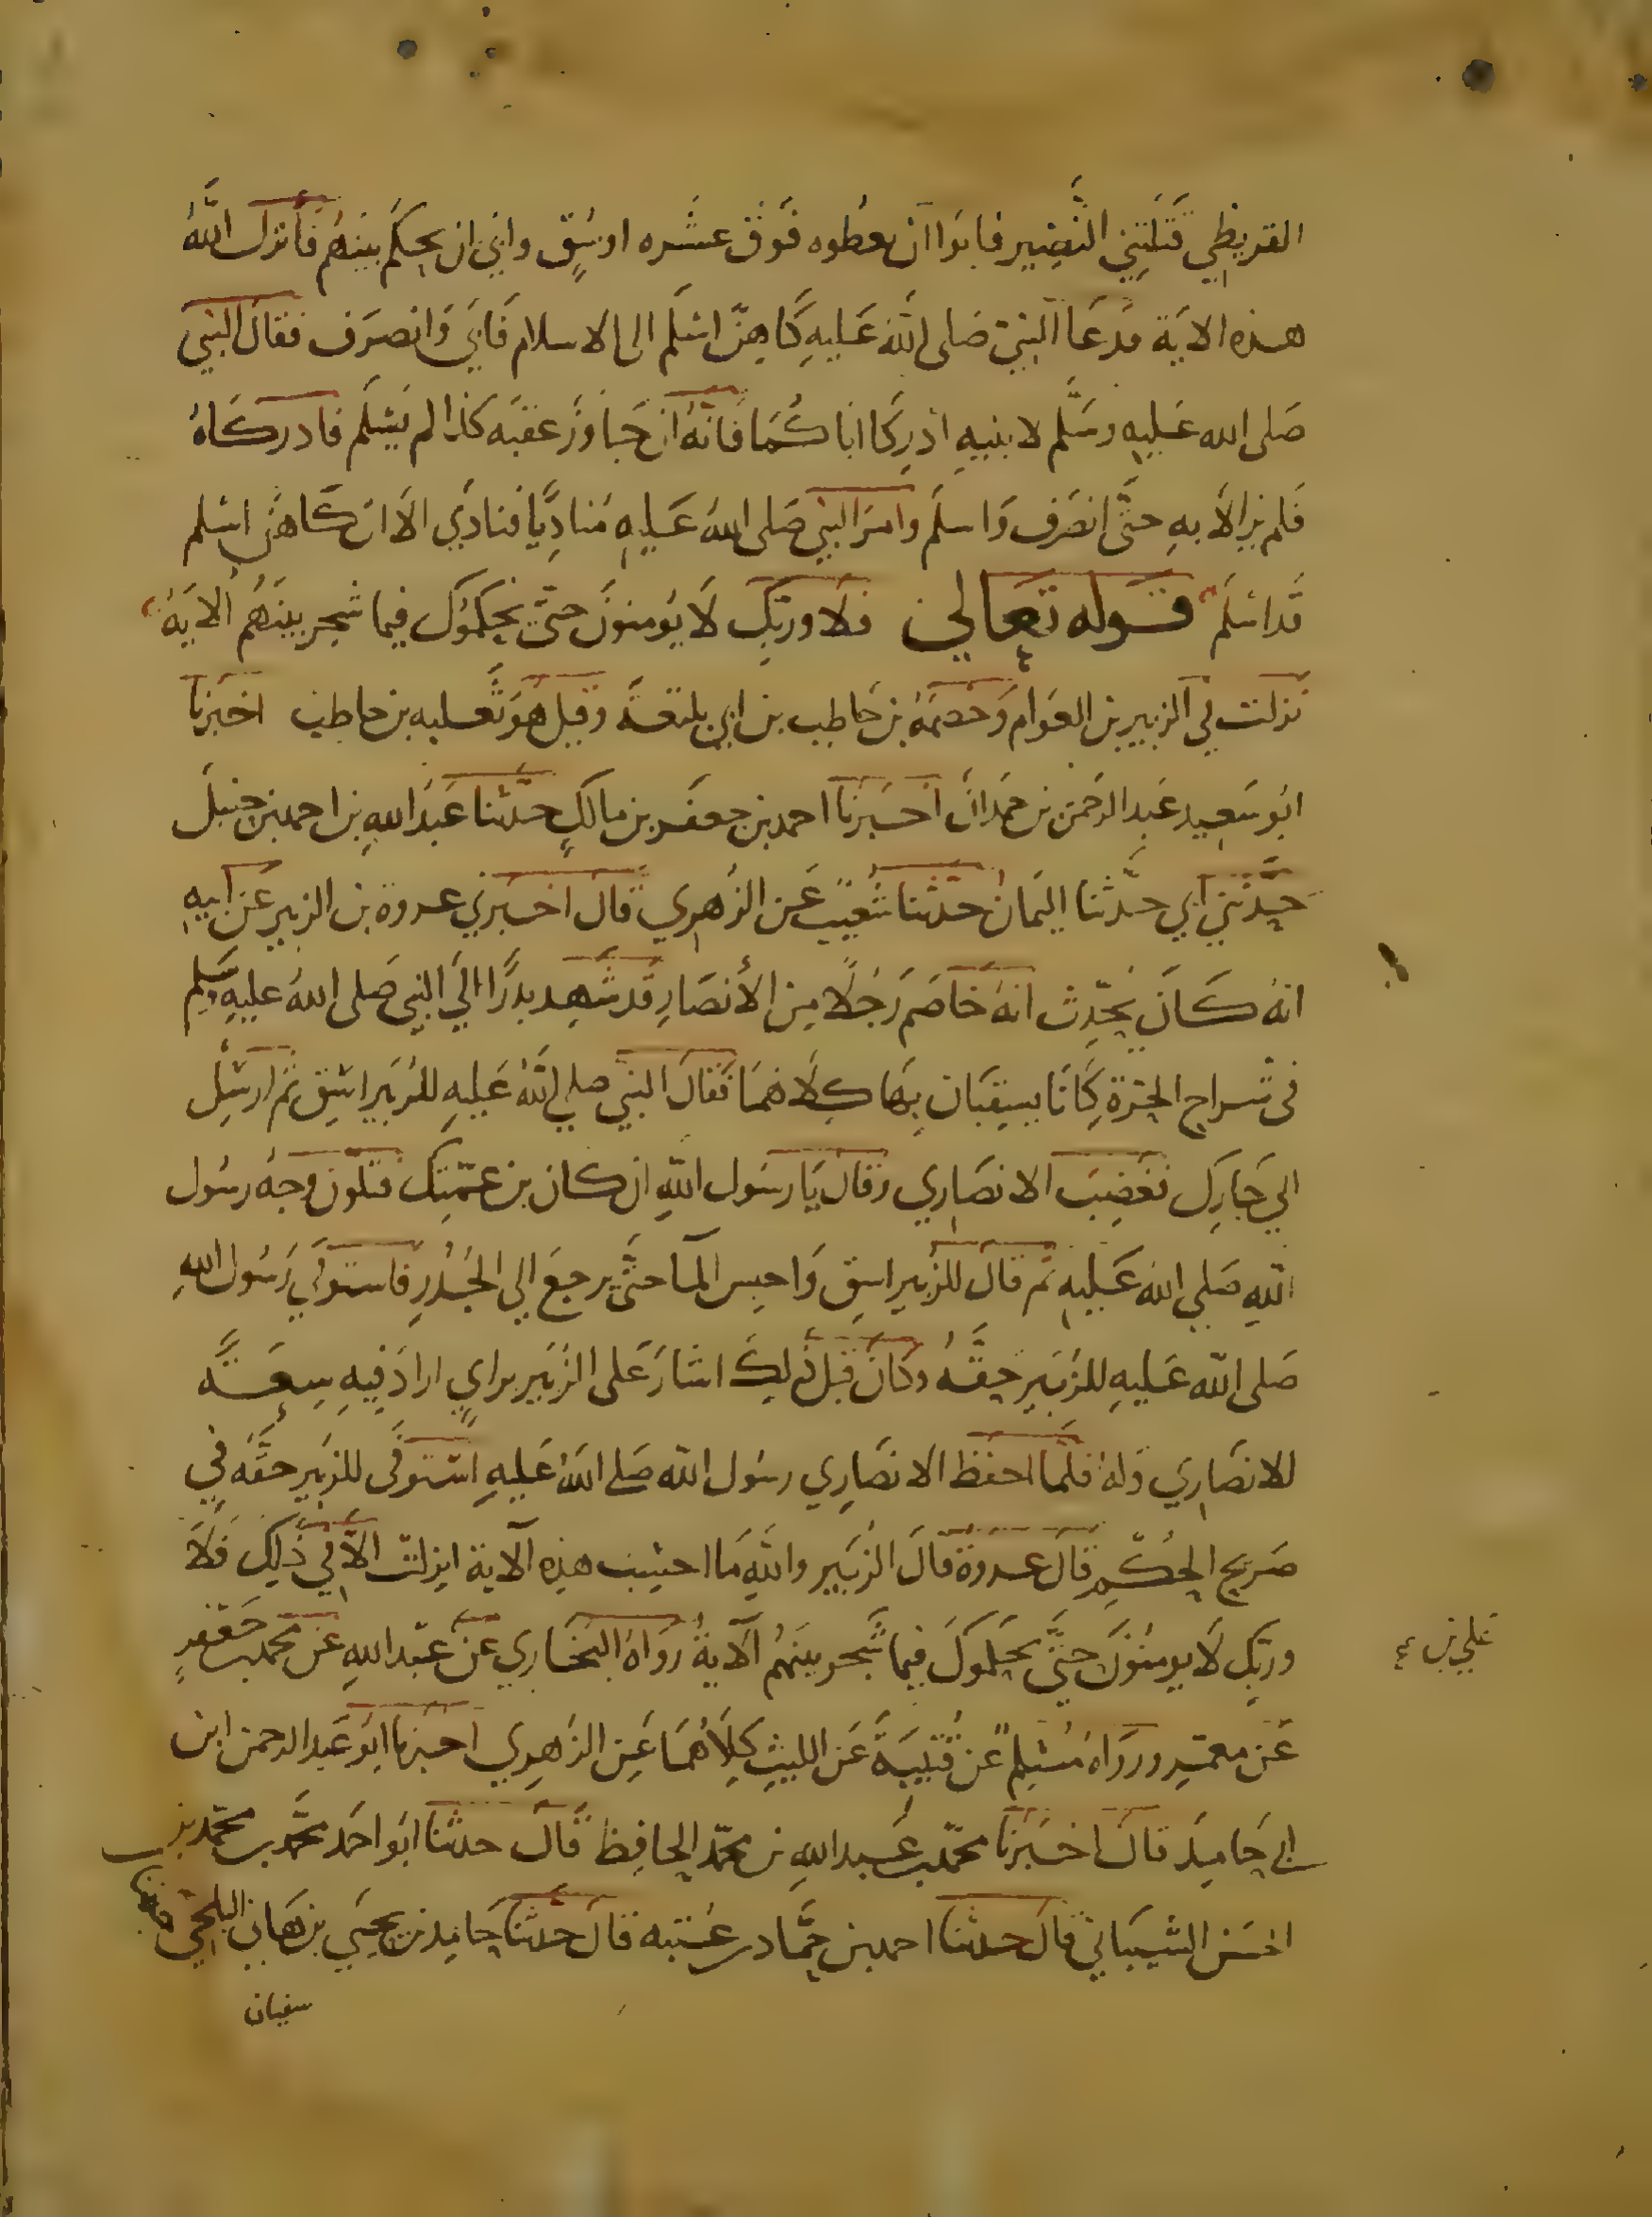 القريظي قتلتني النضير فابوا ان يعطوه فوق عشره اوسق وابي ان يحكم بينهم فانزل الله
هذه الاية فدعا النبي صلى الله عليه كاهن اسلم الى الاسلام فابي وانصرف فقال النبي
صلى الله عليه وسلم لابنيه ادركا اباكما فانه ان جاوز عقبه كذا لم يسلم فادركاه
فلم يزالا به حتى انصرف واسلم وامر النبي صلى الله عليه مناديا فنادي الا ان كاهن اسلم
قد اسلم قوله تعالي فلا وربك لا يومنون حتى يحكموك فيما شجر بينهم الاية
نزلت في الزبير بن العوام وخصمه بن حاطب بن ابي بلتعة وقيل هو ثعلبه بن حاطب اخبرنا
ابو سعيد عبد الرحمن بن حمدان اخبرنا احمد بن جعفر بن مالك حدثنا عبد الله بن احمد بن حنبل
حدثني ابي حدثنا اليمان حدثنا شعيب عن الزهري قال اخبرني عروة بن الزبير عن ابيه
انه كان يحدث انه خاصم رجلا من الأنصار قد شهد بدرا الي النبي صلى الله عليه وسلم
في شراج الحرة كانا يسقيان بها كلاهما فقال النبي صلي الله عليه للزبير اسق ثم ارسل
الي جارك فغضب الانصاري وقال يا رسول الله ان كان بن عمتك فتلون وجه رسول
الله صلي الله عليه ثم قال للزبير اسق واحبس الما حتى يرجع الي الجدر فاستوفي رسول الله
صلى الله عليه للزبير حقه وكان قبل ذلك اشار على الزبير براي اراد فيه سعة
للانصاري وله فلما احفظ الانصاري رسول الله صلى الله عليه استوفى للزبير حقه في
صريح الحكم قال عروة قال الزبير والله ما احسب هذه الآية انزلت الا في ذلك فلا
وربك لا يومنون حتى يحكموك فيما شجر بينهم الآية رواه البخاري عن عبد الله عن محمد بن جعفر
علي بن
عن معمر ورواه مسلم عن قتيبة عن الليث كلاهما عن الزهري اخبرنا ابو عبد الرحمن ابن
ابي حامد قال اخبرنا محمد بن عبد الله بن محمد الحافظ قال حدثنا ابو احمد محمد بن محمد بن
الحسن الشيباني قال حدثنا احمد بن حماد بن عتبه قال حدثنا حامد بن يحيي بن هاني البلخي
سفيان